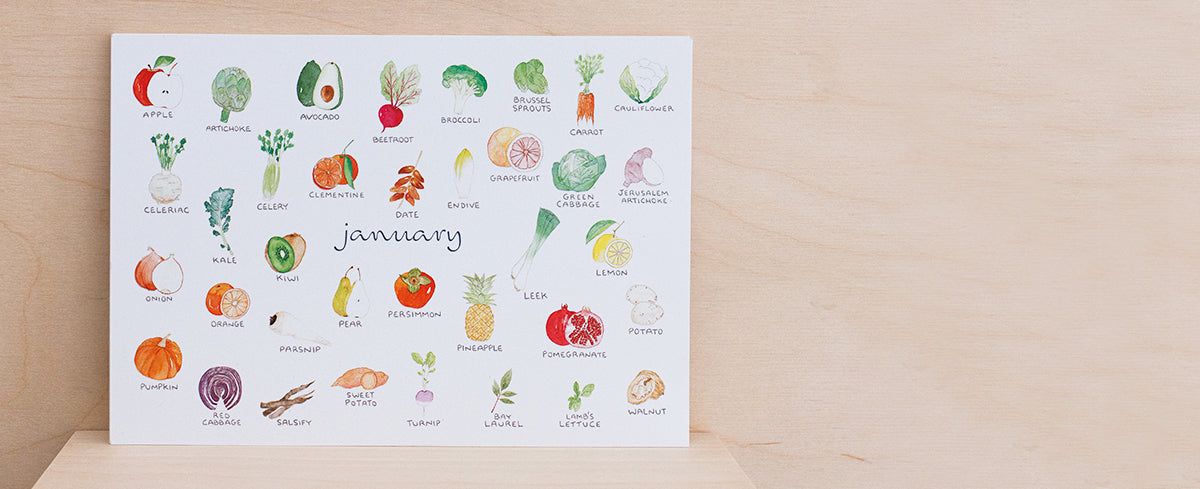 APPLE
ARTICHOKE
AVOCADO
BEETROOT
BROCCOLI
BRUSSEL
SPROUTS
CARROT
CAULIFLOWER
CELERIAC
CELERY
CLEMENTINE
DATE
ENDIVE
GRAPEFRUIT
GREEN
CABBAGE
JERUSALEM
ARTICHOKE
KALE
KIWI
january
LEEK
LEMON
ONION
ORANGE
PARSNIP
PEAR
PERSIMMON
PINEAPPLE
POMEGRANATE
POTATO
PUMPKIN
RED
CABBAGE
SALSIFY
SWEET
POTATO
TURNIP
BAY
LAUREL
LAMB'S
LETTUCE
WALNUT